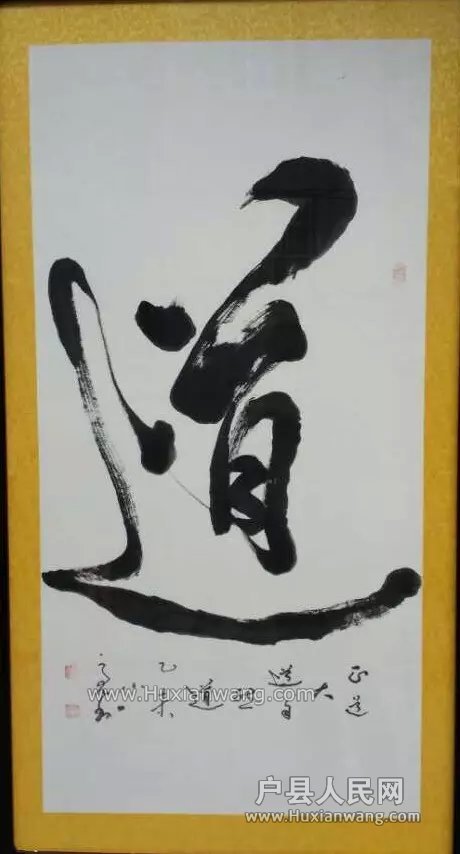 道
正道
大
道自
道
乙未
www.Huxianwang.com
户县人民网
www.Huxianwang.com